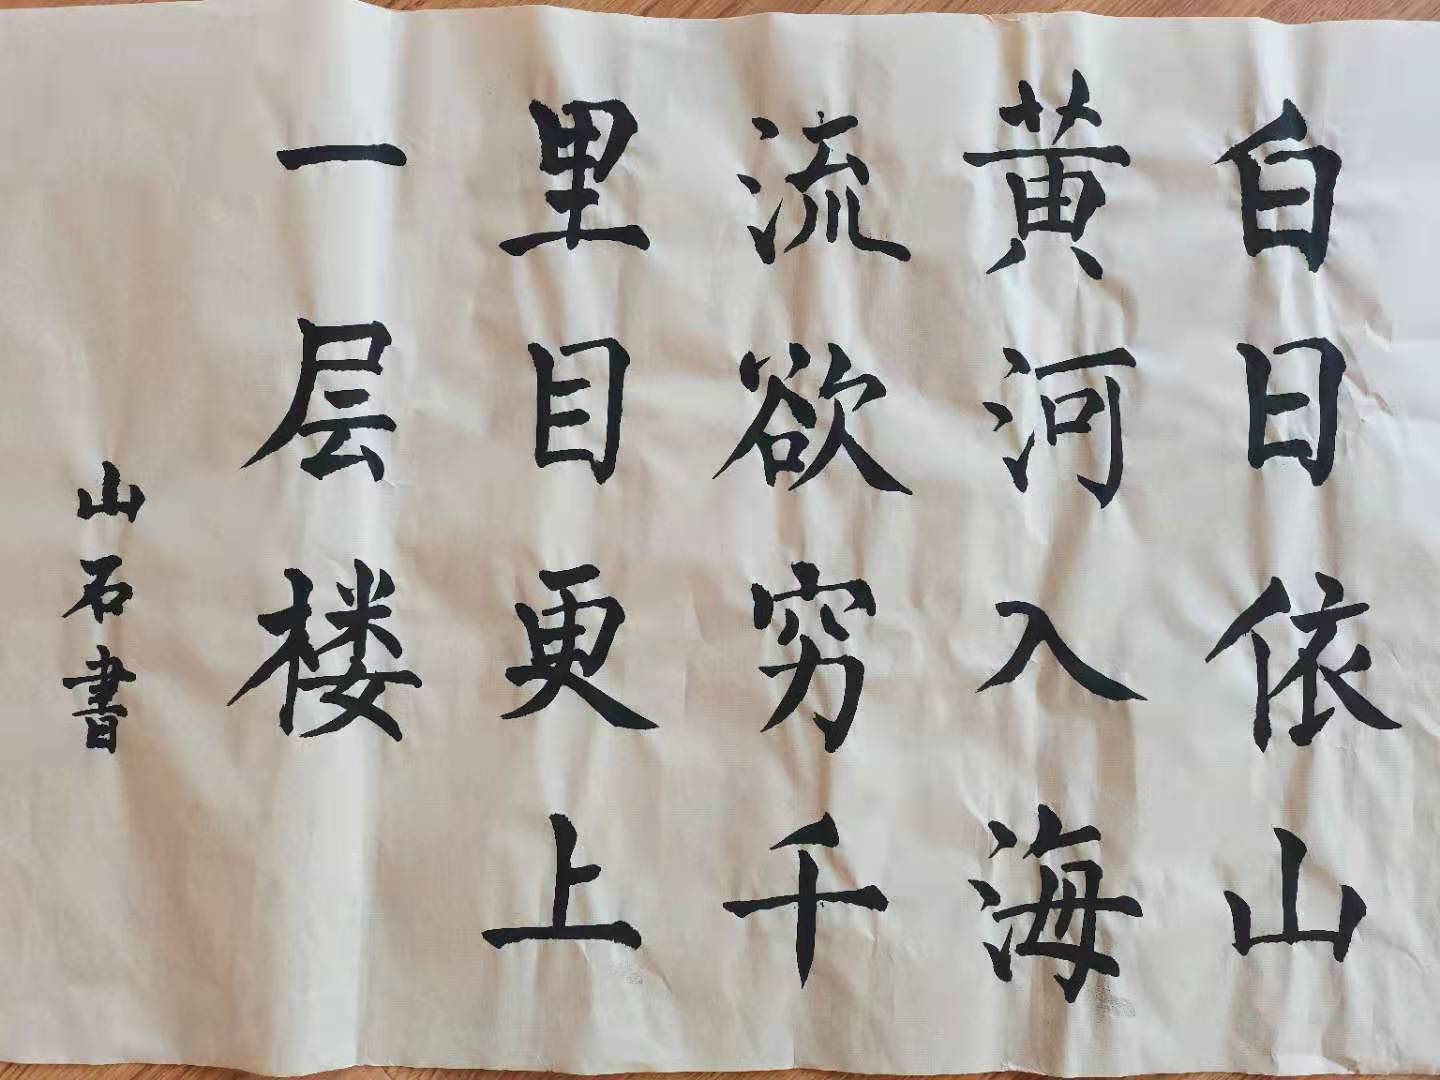 白日依山
黄河入海
流欲穷千
里目更上
一层楼
山石書